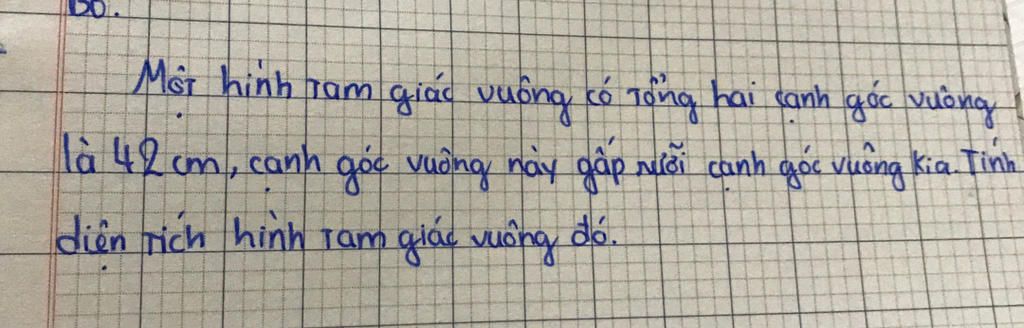 Bài
Một hình tam giác vuông có tổng hai cạnh góc vuông
là 42 cm, cạnh góc vuông này gấp rưỡi cạnh góc vuông kia. Tính
diện tích hình tam giác vuông đó.